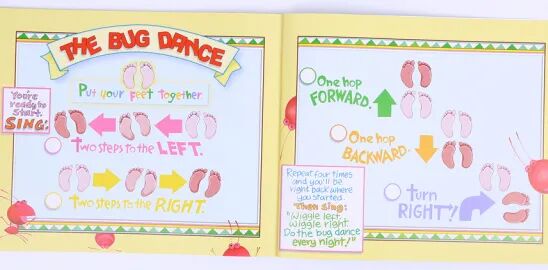 THE BUG DANCE
Put your feet together.
You're
ready to
Start.
SING:
Two steps to the LEFT.
Two steps to the RIGHT.
One hop
FORWARD.
One hop
BACKWARD.
Repeat four times
and you'll be
right back where
you started.
Then sing:
"Wiggle left.
Wiggle right.
Do the bug dance
every night!"
Turn
RIGHT!